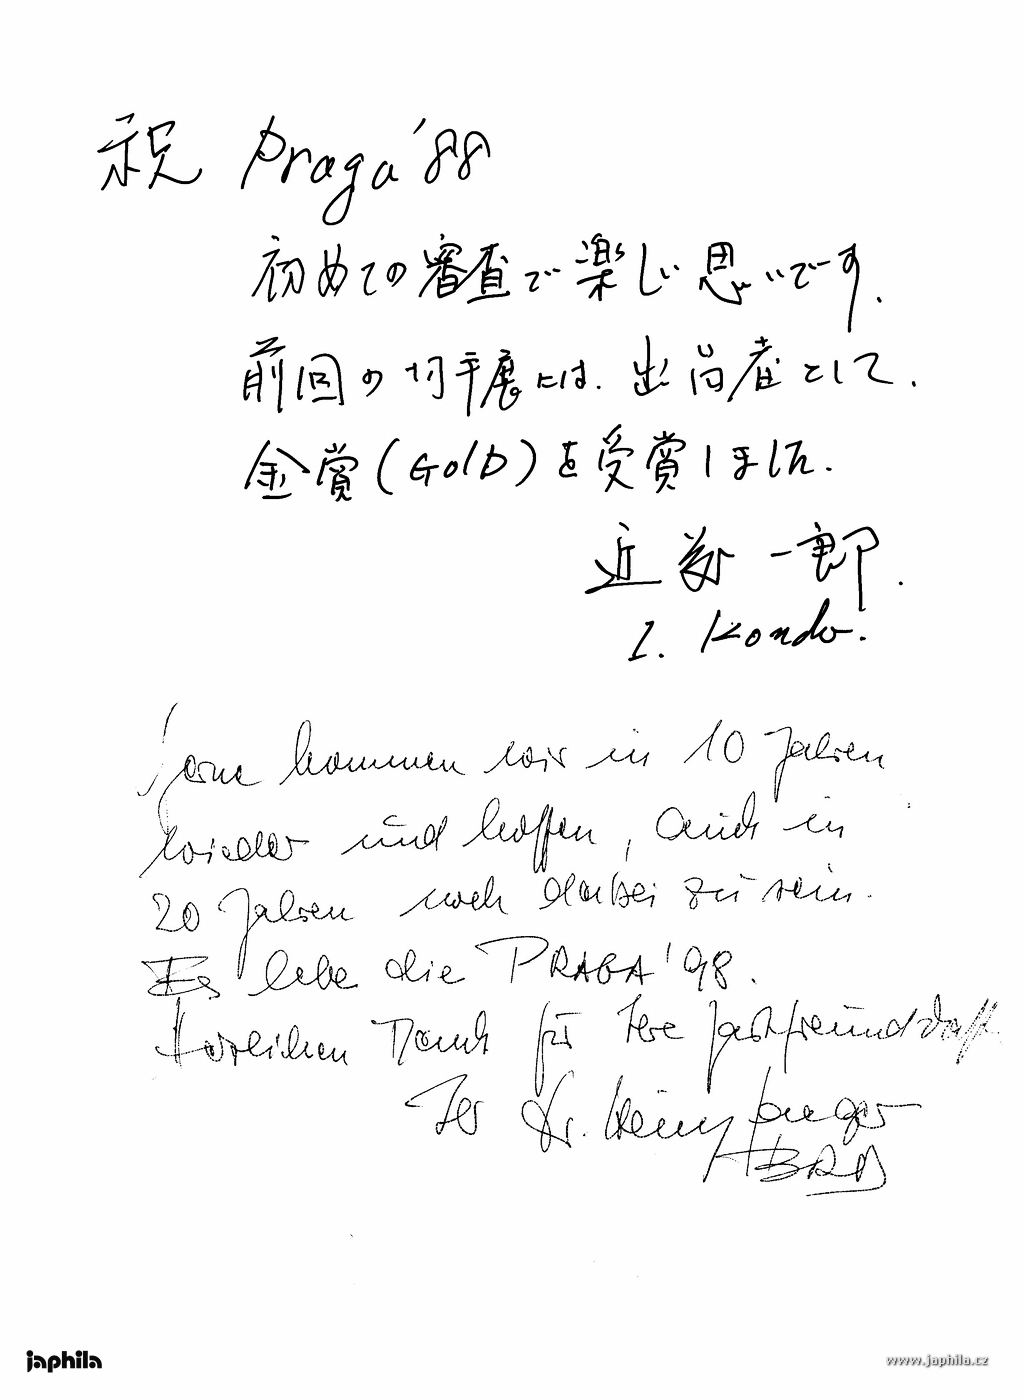 祝 Praga '88
初めての審査で楽しい思いです.
前回の切手展には. 出品者として.
金賞(Gold)を受賞しました.
近 一郎.
I. Kondo.
Gerne kommen wir in 10 Jahren
wieder und hoffen, auch in
20 Jahren noch dabei zu sein.
Es lebe die PRAGA '98.
Herzlichen Dank für Ihre Gastfreundschaft
Ihr Dr. Heinz Jaeger
BRD
japhila
www.japhila.cz